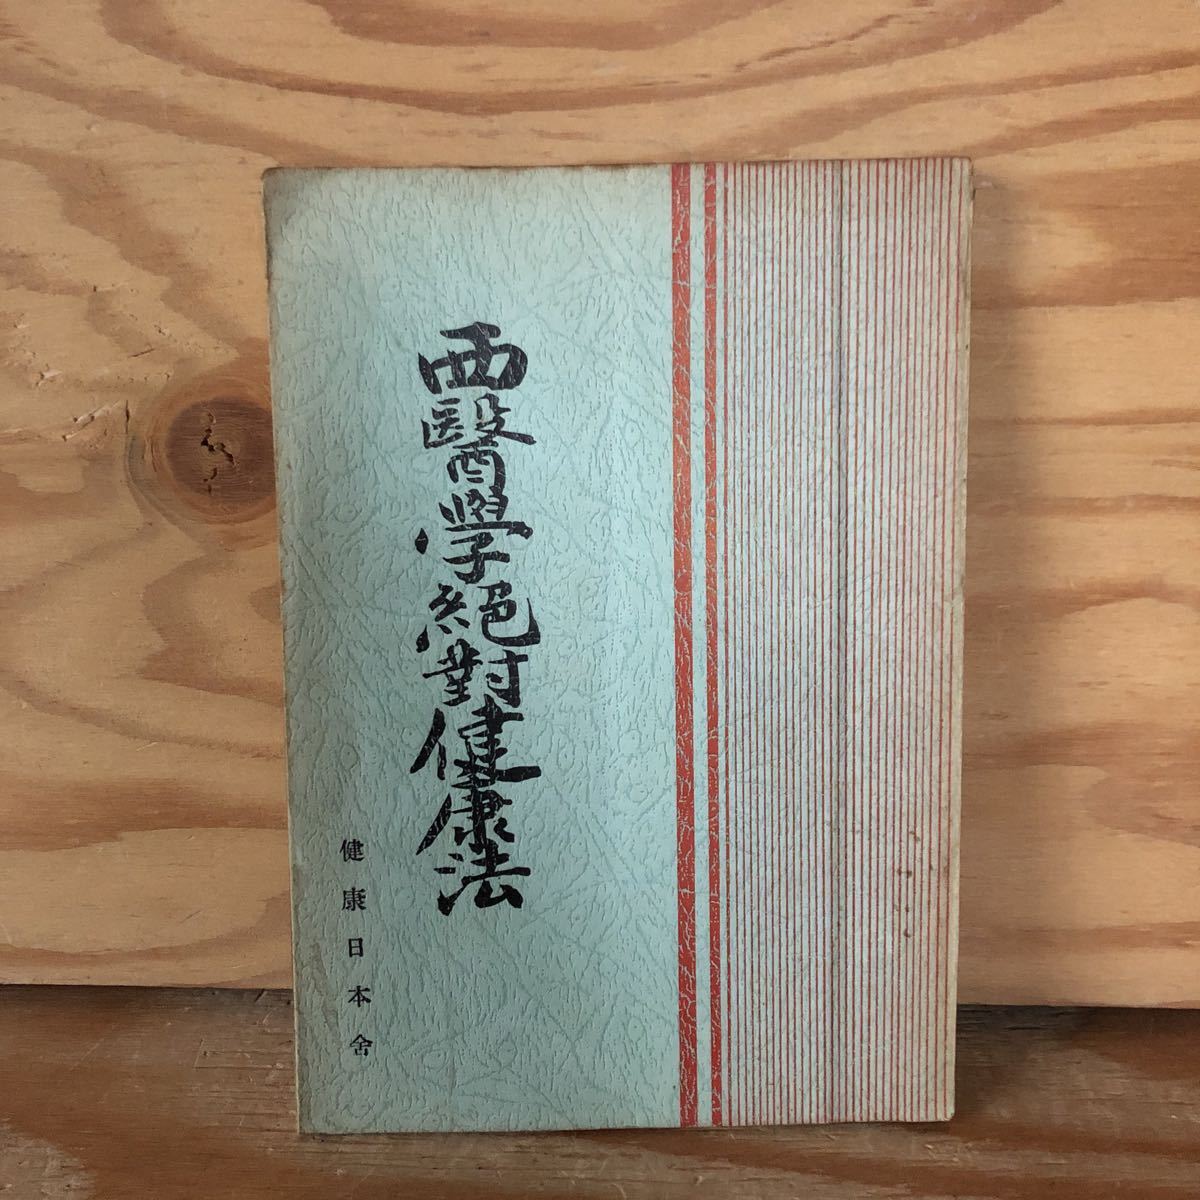 西醫學絕對健康法
健康日本舍